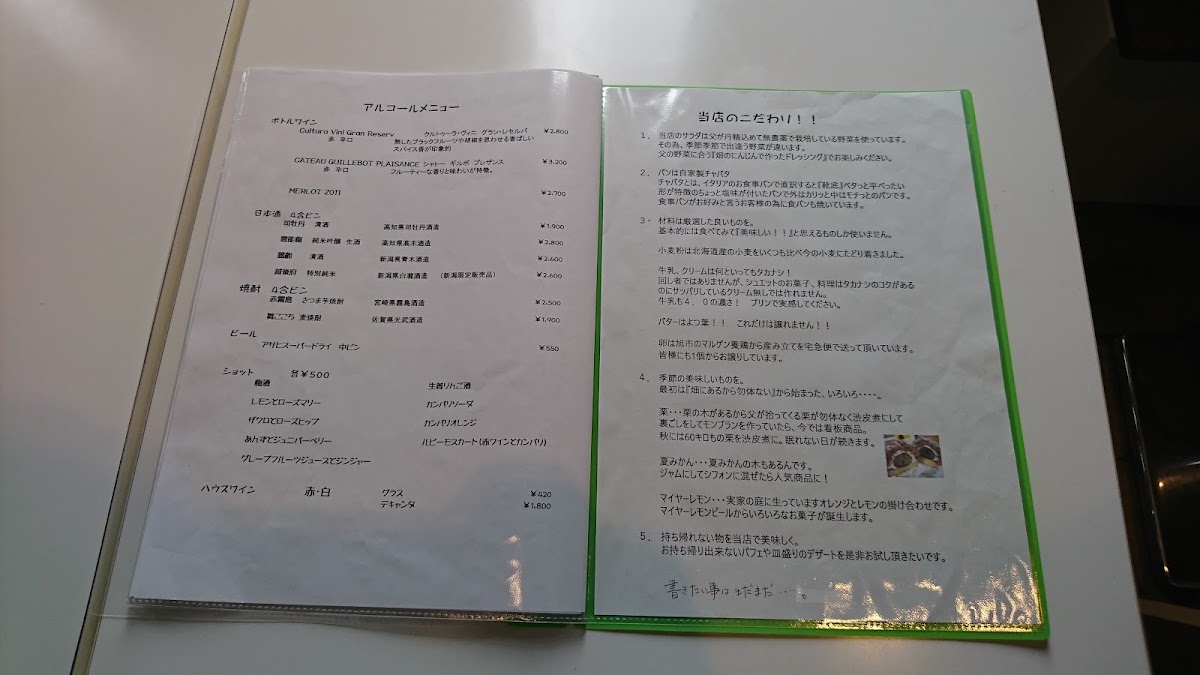 アルコールメニュー
ボトルワイン
Cultura Vini Gran Reserv クルトゥーラ・ヴィニ グラン・レセルバ ¥2,800
赤 辛口 熟したブラックフルーツや胡椒を思わせる香ばしい
スパイス香が印象的
CATEAU GUILLEBOT PLAISANCE シャトー ギルボ プレザンス ¥3,200
赤 辛口 フルーティーな香りと味わいが特徴。
MERLOT 2011 ¥2,700
日本酒 4合ビン
司牡丹 清酒 高知県司牡丹酒造 ¥1,900
純米吟醸 生酒 高知県高木酒造 ¥2,800
鶴齢 清酒 新潟県青木酒造 ¥2,600
特別純米 新潟県白瀧酒造 (新潟限定販売品) ¥2,600
焼酎 4合ビン
赤霧島 さつま芋焼酎 宮崎県霧島酒造 ¥2,500
舞ここち 麦焼酎 佐賀県光武酒造 ¥1,900
ビール
アサヒスーパードライ 中ビン ¥550
ショット 各¥500
梅酒 生姜りんご酒
レモンとローズマリー カンパリソーダ
ザクロとローズヒップ カンパリオレンジ
あんずとジュニパーベリー ルビーモスカート(赤ワインとカンパリ)
グレープフルーツジュースとジンジャー
ハウスワイン 赤・白 グラス ¥420
デキャンタ ¥1,800
当店のこだわり！！
1． 当店のサラダは父が丹精込めて無農薬で栽培している野菜を使っています。
その為、季節季節で出逢う野菜が違います。
父の野菜に合う『畑のにんじんで作ったドレッシング』でお楽しみください。
2． パンは自家製チャバタ
チャバタとは、イタリアのお食事パンで直訳すると『靴底』ペタっと平べったい
形が特徴のちょっと塩味が付いたパンで外はカリッと中はモチっとのパンです。
食事パンがお好みと言うお客様の為に食パンも焼いています。
3- 材料は厳選した良いものを。
基本的には食べてみて『美味しい！！』と思えるものしか使いません。
小麦粉は北海道産の小麦をいくつも比べ今の小麦にたどり着きました。
牛乳、クリームは何といってもタカナシ！
回し者ではありませんが、シュエットのお菓子、料理はタカナシのコクがある
のにサッパリしているクリーム無しでは作れません。
牛乳も4．0の濃さ！ プリンで実感してください。
バターはよつ葉！！ これだけは譲れません！！
卵は旭市のマルゲン養鶏から産み立てを宅急便で送って頂いています。
皆様にも1個からお譲りしています。
4． 季節の美味しいものを。
最初は『畑にあるから勿体ない』から始まった、いろいろ・・・・。
栗・・・栗の木があるから父が拾ってくる栗が勿体なく渋皮煮にして
裏ごしをしてモンブランを作っていたら、今では看板商品。
秋には60キロもの栗を渋皮煮に。眠れない日が続きます。
夏みかん・・・夏みかんの木もあるんです。
ジャムにしてシフォンに混ぜたら人気商品に！
マイヤーレモン・・・実家の庭に生っていますオレンジとレモンの掛け合わせです。
マイヤーレモンピールからいろいろなお菓子が誕生します。
5． 持ち帰れない物を当店で美味しく。
お持ち帰り出来ないパフェや皿盛りのデザートを是非お試し頂きたいです。
書きたい事はまだまだ・・・。